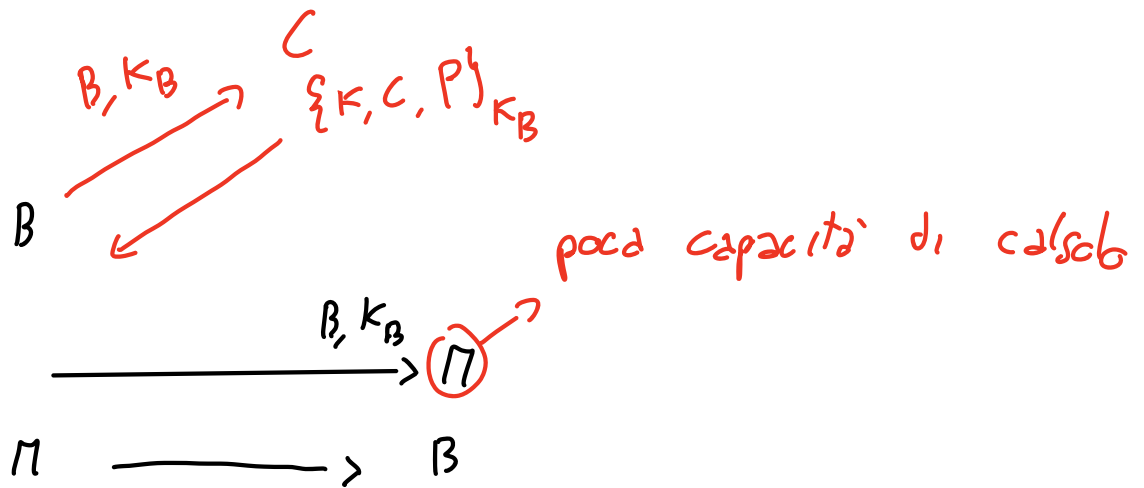 C
B, K_B
{K, C, P}_{K_B}
B
poca capacità di calsolo
B, K_B
M
M B